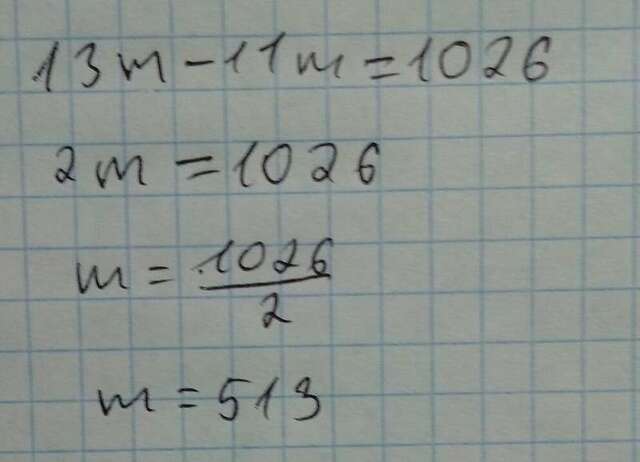 13m-11m=1026
2m=1026
m=1026/2
m=513